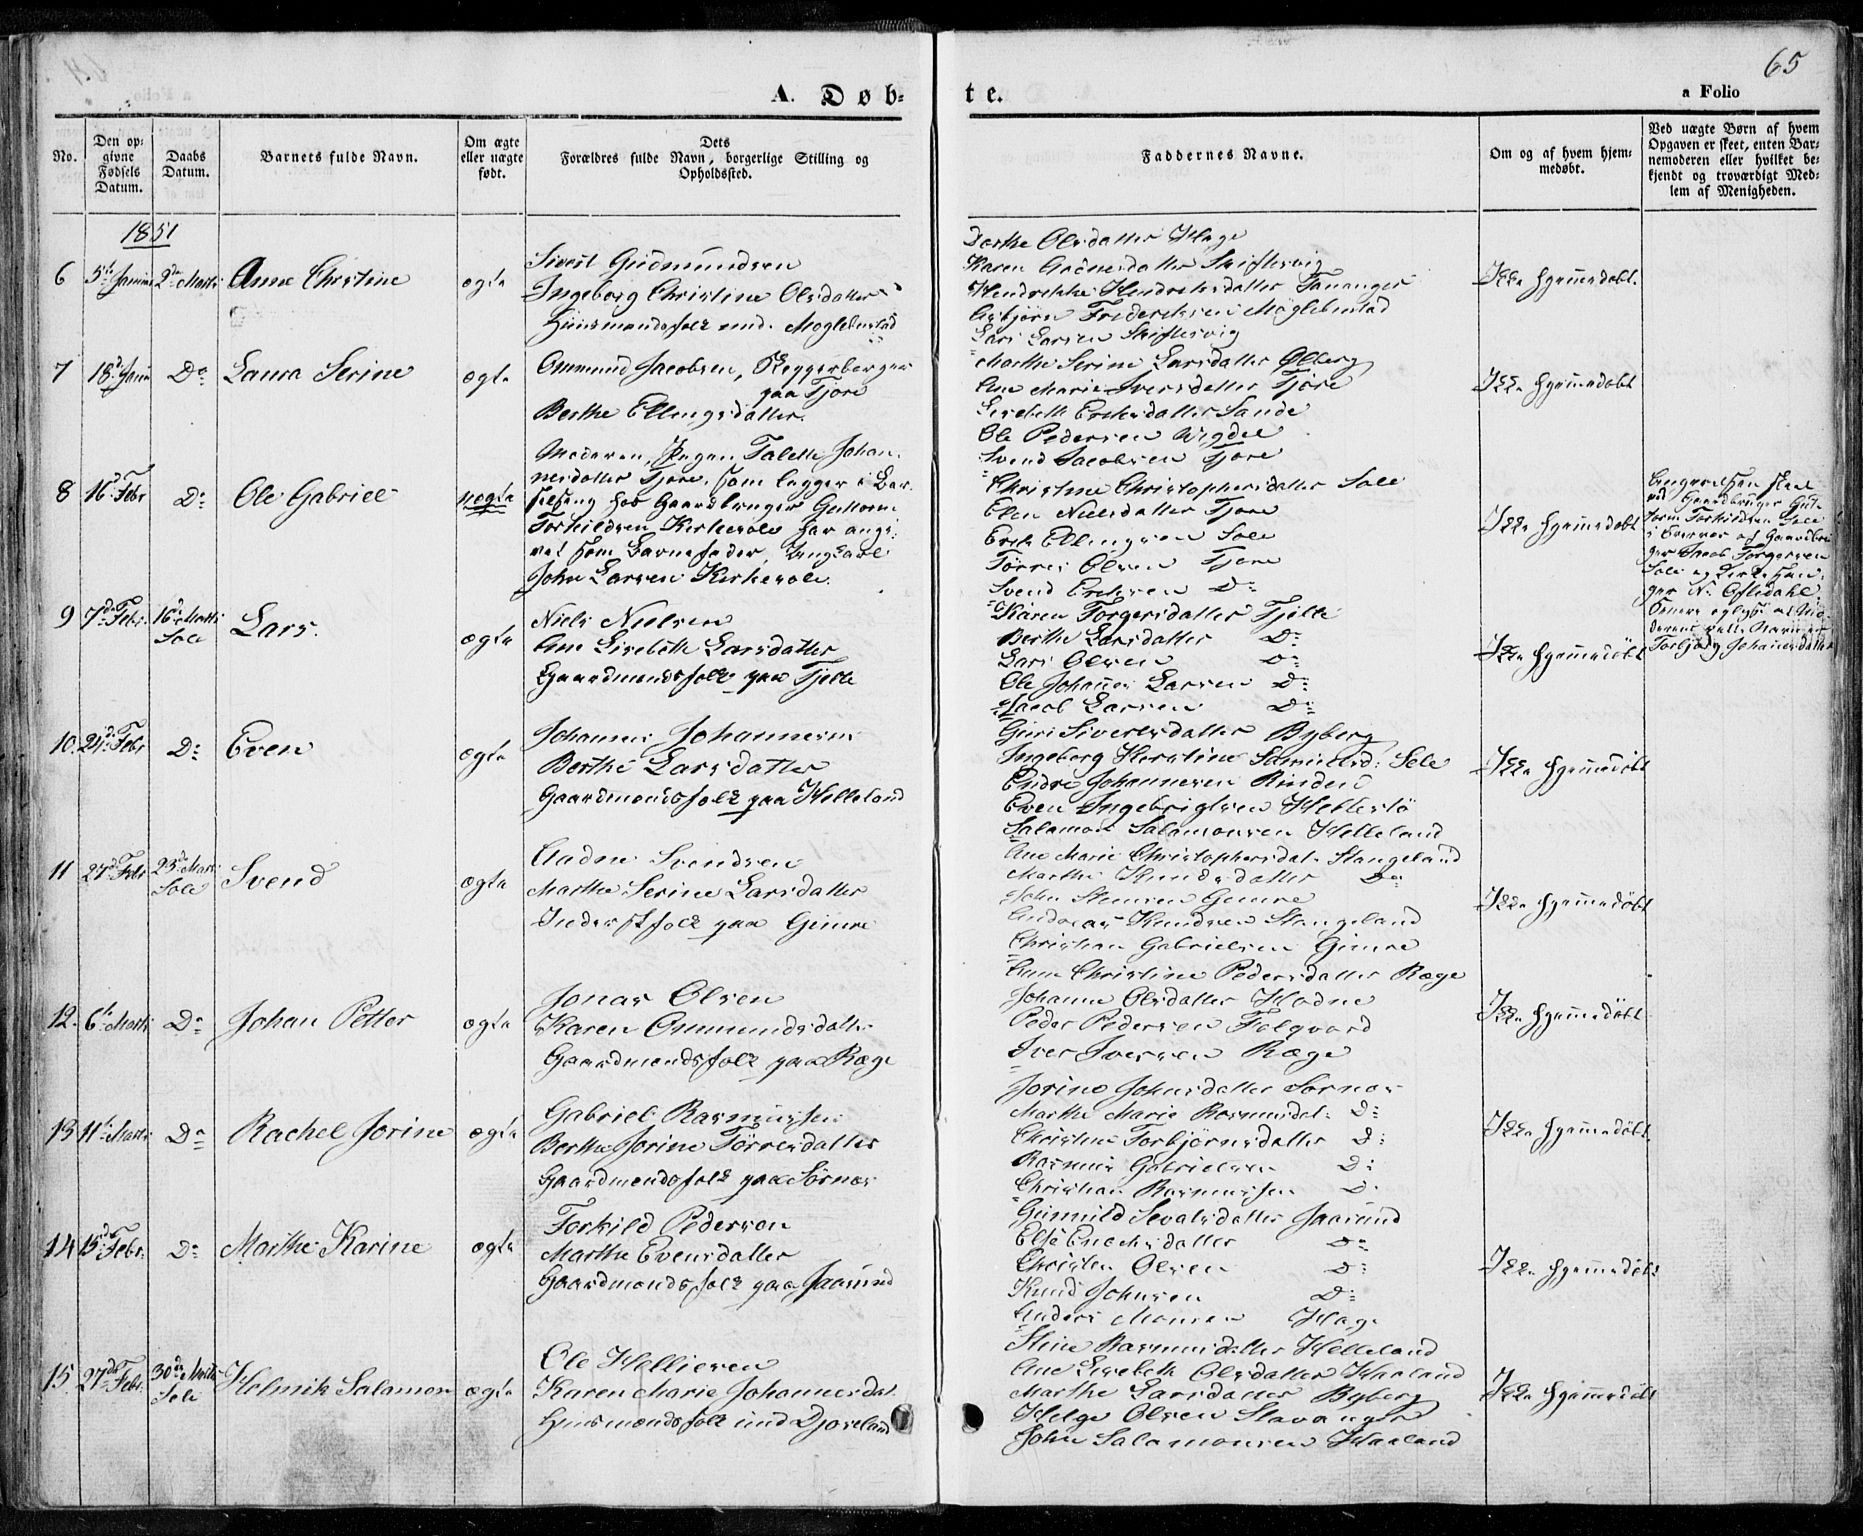 65
A. Døb-
te.
a Folio
No.
Den op-
givne
Fødsels
Datum.
Daabs
Datum.
Barnets fulde Navn.
Om ægte
eller uægte
født.
Dets
Forældres fulde Navn, borgerlige Stilling og
Opholdssted.
Faddernes Navne.
Om og af hvem hjem-
medøbt.
Ved uægte Børn af hvem
Opgaven er skeet, enten Bar-
nemoderen eller hvilket be-
kjendt og troværdigt Med-
lem af Menigheden.
1851
6 5te Januar 2den Marts Anne Christine ægte
Sivert Gudmundsen
Ingeborg Christine Olsdatter
Huusmandsfolk und. Møglebustad
Dorthe Olsdatter Hage
Karen Aadnesdatter Skiftesvig
Hendrikke Hendriksdatter Tananger
Asbjørn Frederiksen Møglebustad
Lars Larsen Skiftesvig
Ikke hjemmedøbt.
7 18d Janu Do Laura Serine ægte
Ommund Jacobsen,
paa Tjore
Berthe Ellingsdatter.
Marthe Serine Larsdatter Ølberg
Ane Marie Iversdatter Tjore
Lisebeth Eriksdatter Sande
Ole Pedersen Wigdel
Svend Jacobsen Tjore
Ikke hjemmedøbt
8 16d Febr Do Ole Gabriel uægte
Moderen, Pigen Talette Johan-
nesdatter Tjore, som ligger i Bar-
selseng hos Gaardbruger Guttorm
Torkildsen Kirkesole har angi-
vet som Barnefader, Ungkarl
John Larsen Kirkesole.
Christine Christophersdatter Sole
Elen Nielsdatter Tjore
Erik Ellingsen Sole
Tørres Olsen Tjore
Svend Eriksen Do
Ikke hjemmedøbt
Angivelsen skeet
ved Gaardbruger Gut-
torm Torkildsen Sole
i Overvær af Gaardbru-
ger Jacob Torgersen
Sole og Kirkesan-
ger N. Asledahl.
Torbjørg Johannesdatter
9 7de Febr. 16d Marts Sole Lars. ægte
Niels Nielsen
Ane Lisebeth Larsdatter
Gaardmandsfolk paa Tjelte
Karen Torgersdatter Tjelte
Berthe Larsdatter Do
Lars Olsen Do
Ole Johannes Larsen Do
Jacob Larsen Do
Ikke hjemmedøbt
10. 21d Febr Do Even ægte
Johannes Johannesen
Berthe Larsdatter
Gaardmandsfolk paa Helleland
Guri Siversdatter Byberg
Ingeborg Kirstine Samuelsd: Sele
Endre Johannesen Rinden
Even Ingebrigtsen Hellestø
Salamon Salamonsen Helleland
Ikke hjemmedøbt
11 27d Febr 23d Marts Sole Svend ægte
Aadne Svendsen
Marthe Serine Larsdatter
Inderstfolk paa Gimre
Ane Marie Christophersdat. Stangeland
Marthe Knudsdatter Do
John Steensen Gimre
Andreas Knudsen Stangeland
Christian Gabrielsen Gimre
Ikke hjemmedøbt
12. 6te Marts Do Johan Petter ægte
Jonas Olsen
Karen Ommundsdatter
Gaardmandsfolk paa Ræge
Anne Christine Pedersdatter Ræge
Johanne Olsdatter Hodne
Peder Pedersen Folqvord
Iver Iversen Ræge
Ikke hjemmedøbt
13 11te Marts Do Rachel Jorine ægte
Gabriel Rasmussen
Berthe Jorine Tørresdatter
Gaardmandsfolk paa Sørnæs
Jorine Johnsdatter Sørnæs
Marthe Marie Rasmusdat. D:
Christine Torbjørnsdatter D:
Rasmus Gabrielsen D:
Christian Rasmussen D.
Ikke hjemmedøbt
14 15d Febr: Do Marthe Karine ægte
Torkild Pedersen
Marthe Evensdatter
Gaardmandsfolk paa Jaasund
Gunnild Sevalsdatter Jaasund
Else Enochsdatter Do
Christen Olsen D:
Knud Johnsen D:
Anders Monsen Hage
Ikke hjemmedøbt
15 27de Febr. 30de Marts Sole Helmik Salamon ægte
Ole Helliesen
Karen Marie Johannesdat.
Huusmandsfolk und Djoseland
Stine Rasmusdatter Helleland
Ane Lisebeth Olsdatter Haaland
Marthe Larsdatter Byberg
Helge Olsen Stavanger
John Salamonsen Haaland
Ikke hjemmedøbt